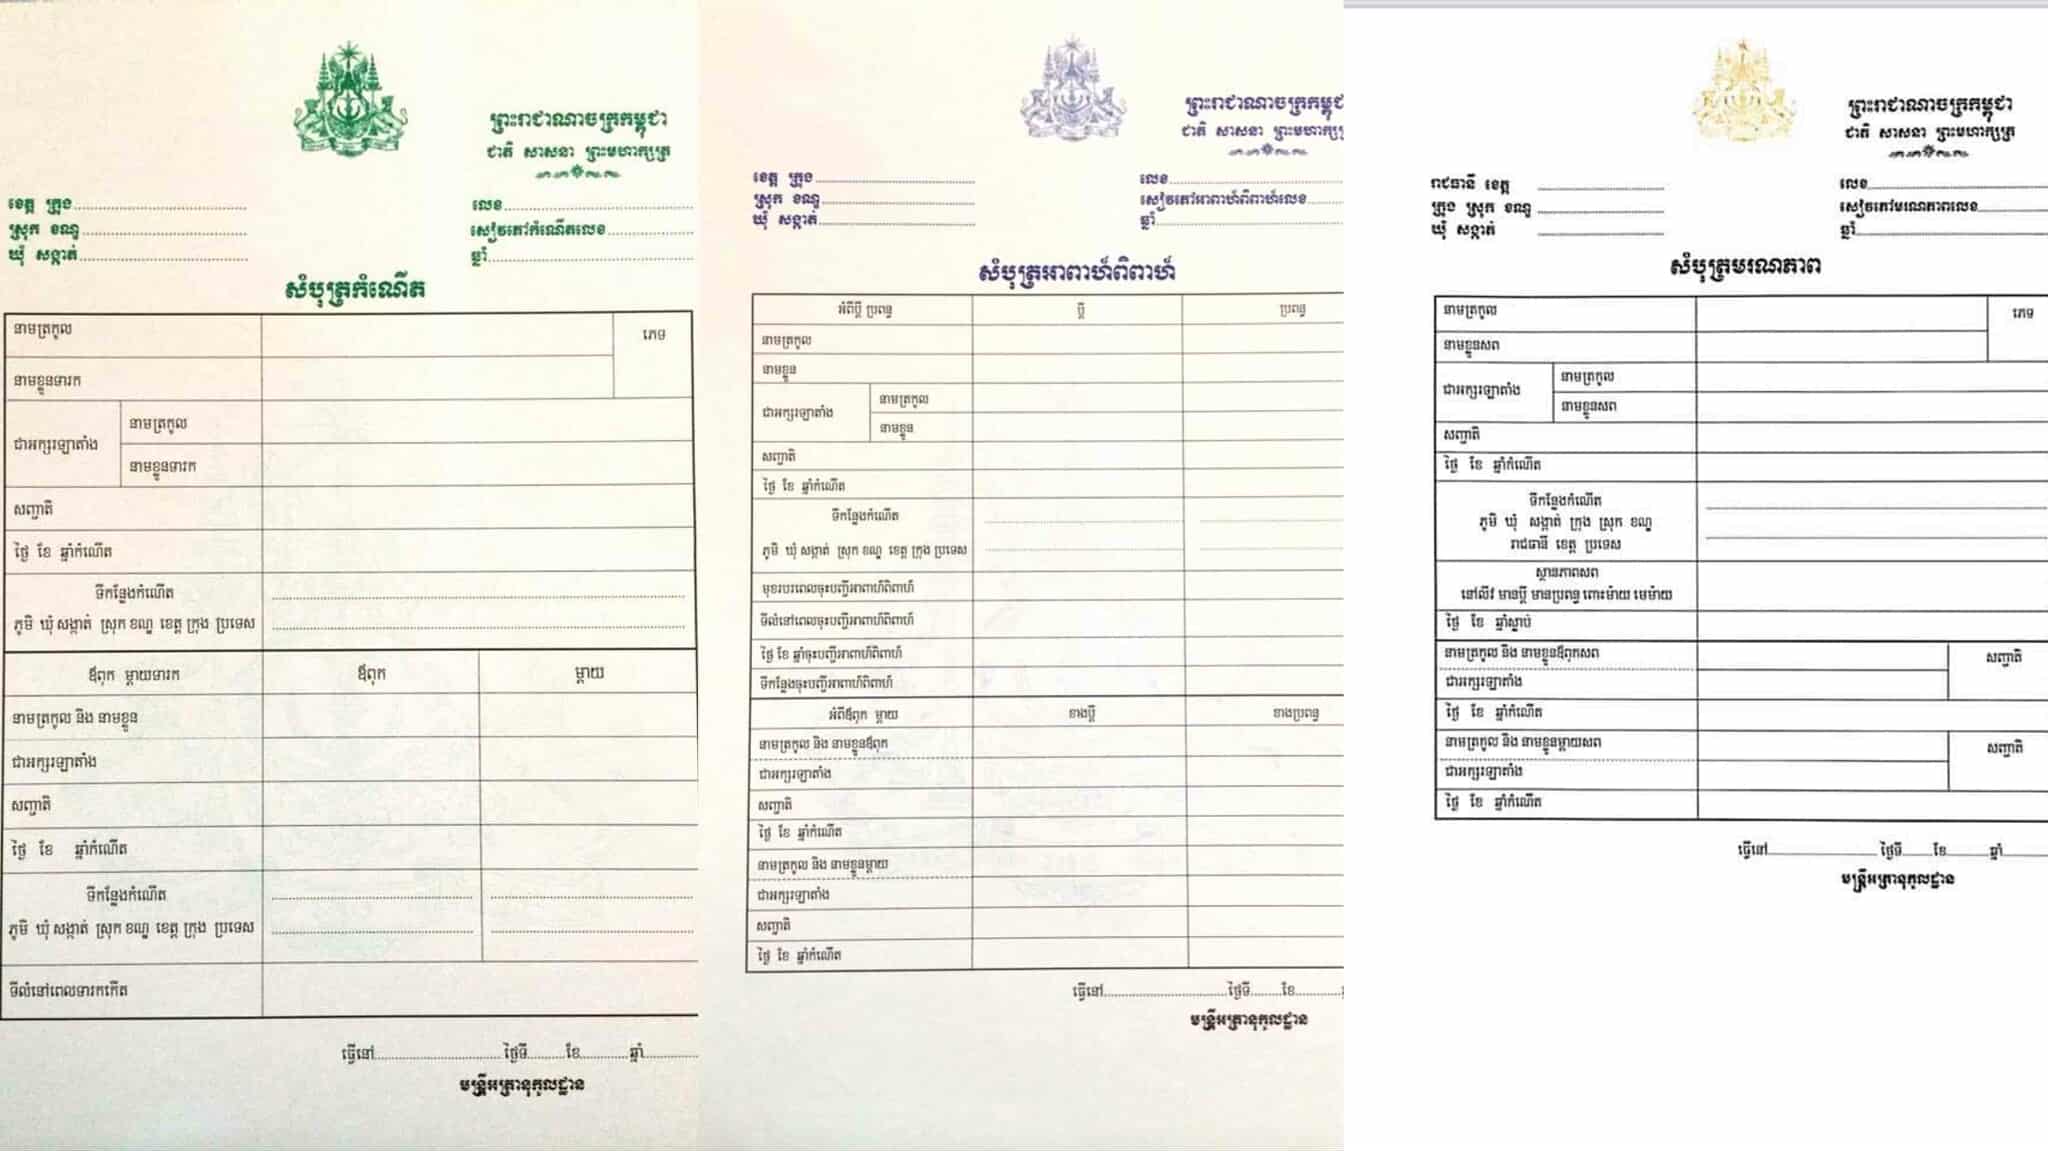 ព្រះរាជាណាចក្រកម្ពុជា
ជាតិ សាសនា ព្រះមហាក្សត្រ
ខេត្ត ក្រុង
ស្រុក ខណ្ឌ
ឃុំ សង្កាត់
លេខ
សៀវភៅកំណើតលេខ
ឆ្នាំ
សំបុត្រកំណើត
នាមត្រកូល
ភេទ
នាមខ្លួនទារក
ជាអក្សរឡាតាំង
នាមត្រកូល
នាមខ្លួនទារក
សញ្ជាតិ
ថ្ងៃ ខែ ឆ្នាំកំណើត
ទីកន្លែងកំណើត
ភូមិ ឃុំ សង្កាត់ ស្រុក ខណ្ឌ ខេត្ត ក្រុង ប្រទេស
ឪពុក ម្ដាយទារក ឪពុក ម្ដាយ
នាមត្រកូល និង នាមខ្លួន
ជាអក្សរឡាតាំង
សញ្ជាតិ
ថ្ងៃ ខែ ឆ្នាំកំណើត
ទីកន្លែងកំណើត
ភូមិ ឃុំ សង្កាត់ ស្រុក ខណ្ឌ ខេត្ត ក្រុង ប្រទេស
ទីលំនៅពេលទារកកើត
ធ្វើនៅ ថ្ងៃទី ខែ ឆ្នាំ
មន្ត្រីអត្រានុកូលដ្ឋាន
ព្រះរាជាណាចក្រកម្ពុជា
ជាតិ សាសនា ព្រះមហាក្ស
ខេត្ត ក្រុង
ស្រុក ខណ្ឌ
ឃុំ សង្កាត់
លេខ
សៀវភៅអាពាហ៍ពិពាហ៍លេខ
ឆ្នាំ
សំបុត្រអាពាហ៍ពិពាហ៍
អំពីប្ដី ប្រពន្ធ ប្ដី ប្រពន្ធ
នាមត្រកូល
នាមខ្លួន
ជាអក្សរឡាតាំង
នាមត្រកូល
នាមខ្លួន
សញ្ជាតិ
ថ្ងៃ ខែ ឆ្នាំកំណើត
ទីកន្លែងកំណើត
ភូមិ ឃុំ សង្កាត់ ស្រុក ខណ្ឌ ខេត្ត ក្រុង ប្រទេស
មុខរបរពេលចុះបញ្ជីអាពាហ៍ពិពាហ៍
ទីលំនៅពេលចុះបញ្ជីអាពាហ៍ពិពាហ៍
ថ្ងៃ ខែ ឆ្នាំចុះបញ្ជីអាពាហ៍ពិពាហ៍
ទីកន្លែងចុះបញ្ជីអាពាហ៍ពិពាហ៍
អំពីឪពុក ម្ដាយ ខាងប្ដី ខាងប្រពន្ធ
នាមត្រកូល និង នាមខ្លួនឪពុក
ជាអក្សរឡាតាំង
សញ្ជាតិ
ថ្ងៃ ខែ ឆ្នាំកំណើត
នាមត្រកូល និង នាមខ្លួនម្ដាយ
ជាអក្សរឡាតាំង
សញ្ជាតិ
ថ្ងៃ ខែ ឆ្នាំកំណើត
ធ្វើនៅ ថ្ងៃទី ខែ
មន្ត្រីអត្រានុកូលដ្ឋាន
ព្រះរាជាណាចក្រកម្ពុជា
ជាតិ សាសនា ព្រះមហាក្សត្រ
រាជធានី ខេត្ត
ក្រុង ស្រុក ខណ្ឌ
ឃុំ សង្កាត់
លេខ
សៀវភៅមរណភាពលេខ
ឆ្នាំ
សំបុត្រមរណភាព
នាមត្រកូល
ភេទ
នាមខ្លួនសព
ជាអក្សរឡាតាំង
នាមត្រកូល
នាមខ្លួនសព
សញ្ជាតិ
ថ្ងៃ ខែ ឆ្នាំកំណើត
ទីកន្លែងកំណើត
ភូមិ ឃុំ សង្កាត់ ក្រុង ស្រុក ខណ្ឌ
រាជធានី ខេត្ត ប្រទេស
ស្ថានភាពសព
នៅលីវ មានប្ដី មានប្រពន្ធ ពោះម៉ាយ មេម៉ាយ
ថ្ងៃ ខែ ឆ្នាំស្លាប់
នាមត្រកូល និង នាមខ្លួនឪពុកសព
សញ្ជាតិ
ជាអក្សរឡាតាំង
ថ្ងៃ ខែ ឆ្នាំកំណើត
នាមត្រកូល និង នាមខ្លួនម្ដាយសព
សញ្ជាតិ
ជាអក្សរឡាតាំង
ថ្ងៃ ខែ ឆ្នាំកំណើត
ធ្វើនៅ ថ្ងៃទី ខែ ឆ្នាំ
មន្ត្រីអត្រានុកូលដ្ឋាន